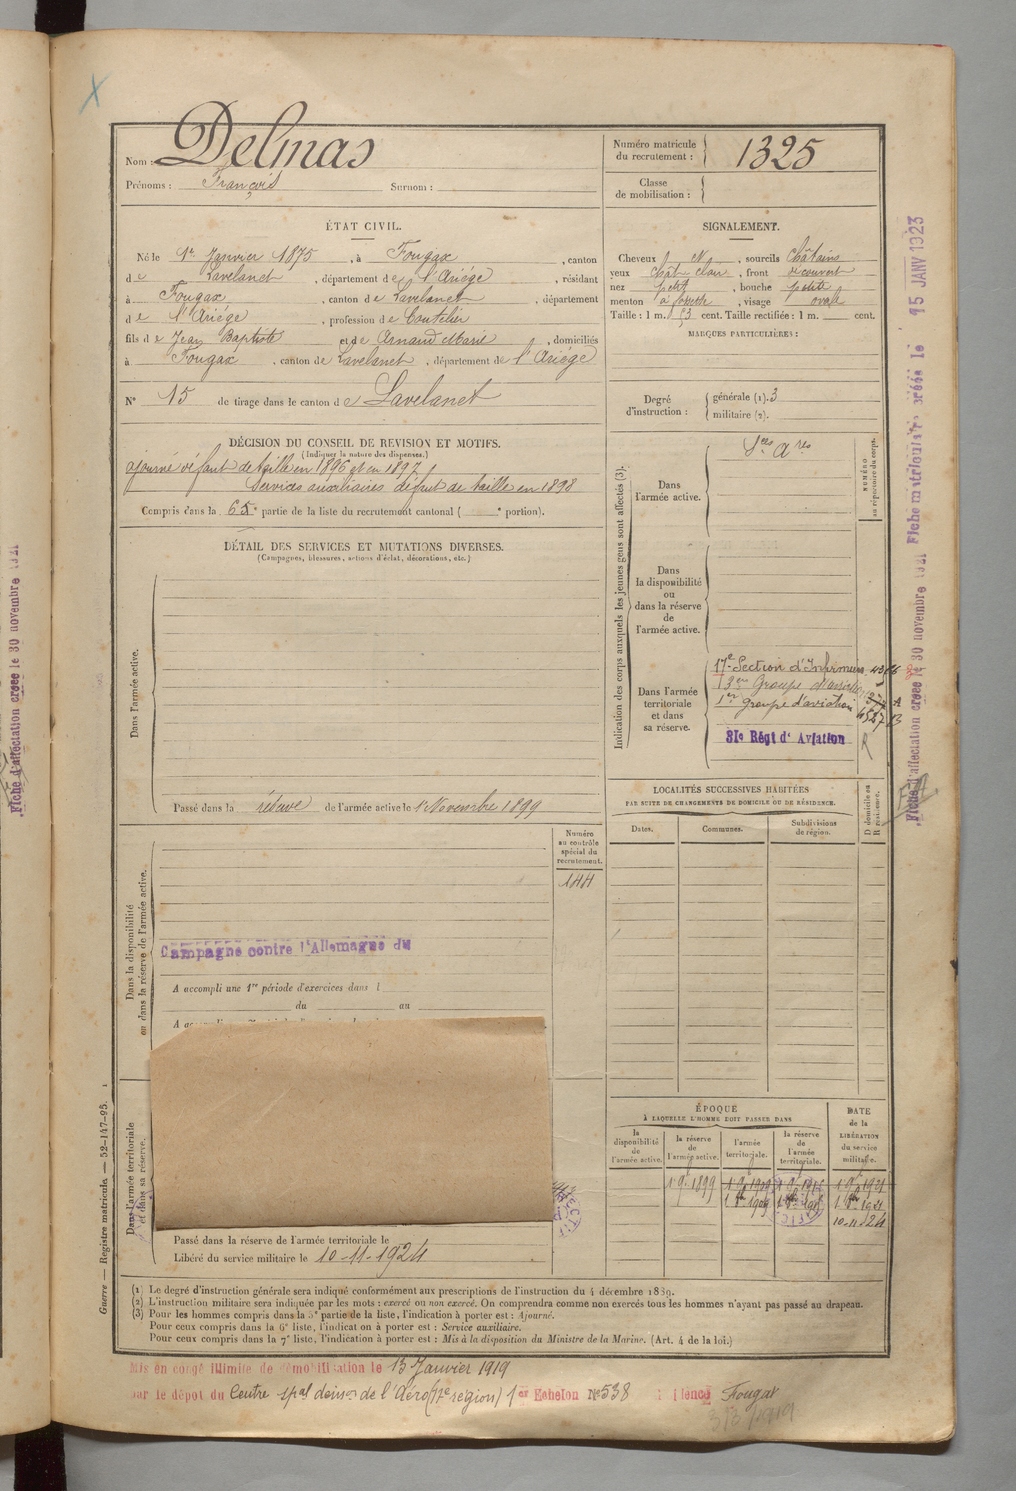 Nom : Delmas
Prénoms : François Surnom :
Numéro matricule
du recrutement : 1325
Classe
de mobilisation :
ÉTAT CIVIL.
Né le 1er Janvier 1875, à Fougax, canton
de Lavelanet, département de l'Ariège, résidant
à Fougax, canton de Lavelanet, département
de l'Ariège, profession de Coutelier
fils de Jean Baptiste et de Arnaud Marie, domiciliés
à Fougax, canton de Lavelanet, département de l'Ariège
N° 15 de tirage dans le canton de Lavelanet
SIGNALEMENT.
Cheveux ch, sourcils châtains
yeux chât clair, front découvert
nez petit, bouche petite
menton à fossette, visage ovale
Taille : 1 m. 53 cent. Taille rectifiée : 1 m. cent.
MARQUES PARTICULIÈRES :
Degré
d'instruction :
générale (1). 3
militaire (2).
DÉCISION DU CONSEIL DE REVISION ET MOTIFS.
(Indiquer la nature des dispenses.)
ajourné défaut de taille en 1896 et en 1897
Services auxiliaires défaut de taille en 1898
Compris dans la 6e partie de la liste du recrutement cantonal ( e portion).
DÉTAIL DES SERVICES ET MUTATIONS DIVERSES.
(Campagnes, blessures, actions d'éclat, décorations, etc.)
Dans l'armée active.
Passé dans la réserve de l'armée active le 1 Novembre 1899
Indication des corps auxquels les jeunes gens sont affectés (3).
NUMÉRO
au répertoire du corps.
Dans
l'armée active.
Dans
la disponibilité
ou
dans la réserve
de
l'armée active.
Dans l'armée
territoriale
et dans
sa réserve.
17e Section d'Infirmiers
1er groupe d'aviation
31e Régt d'Aviation
LOCALITÉS SUCCESSIVES HABITÉES
PAR SUITE DE CHANGEMENTS DE DOMICILE OU DE RÉSIDENCE.
D domicile ou
R résidence.
Dates. Communes. Subdivisions
de région.
Dans la disponibilité
ou dans la réserve de l'armée active.
Numéro
au contrôle
spécial du
recrutement.
144
Campagne contre l'Allemagne du
A accompli une 1re période d'exercices dans l
du au
Dans l'armée territoriale
et dans sa réserve.
Passé dans la réserve de l'armée territoriale le
Libéré du service militaire le 10-11-1924
ÉPOQUE
À LAQUELLE L'HOMME DOIT PASSER DANS
DATE
de la
LIBÉRATION
du service
militaire.
la
disponibilité
de
l'armée active.
la réserve
de
l'armée active.
l'armée
territoriale.
la réserve
de
l'armée
territoriale.
1 9 1899
10-11-24
(1) Le degré d'instruction générale sera indiqué conformément aux prescriptions de l'instruction du 4 décembre 1889.
(2) L'instruction militaire sera indiquée par les mots : exercé ou non exercé. On comprendra comme non exercés tous les hommes n'ayant pas passé au drapeau.
(3) Pour les hommes compris dans la 5e partie de la liste, l'indication à porter est : Ajourné.
Pour ceux compris dans la 6e liste, l'indication à porter est : Service auxiliaire.
Pour ceux compris dans la 7e liste, l'indication à porter est : Mis à la disposition du Ministre de la Marine. (Art. 4 de la loi.)
Mis en congé illimité de démobilisation le 13 Janvier 1919
par le dépôt du Centre spal de l'Aéro (17e région) 1er Echelon N° 538 Fougax
Guerre — Registre matricule. — 52-147-95.
Fiche d'affectation créée le 30 novembre 1921
Fiche d'affectation créée le 30 novembre 1921 Fiche matriculaire créée le 15 JANV 1923